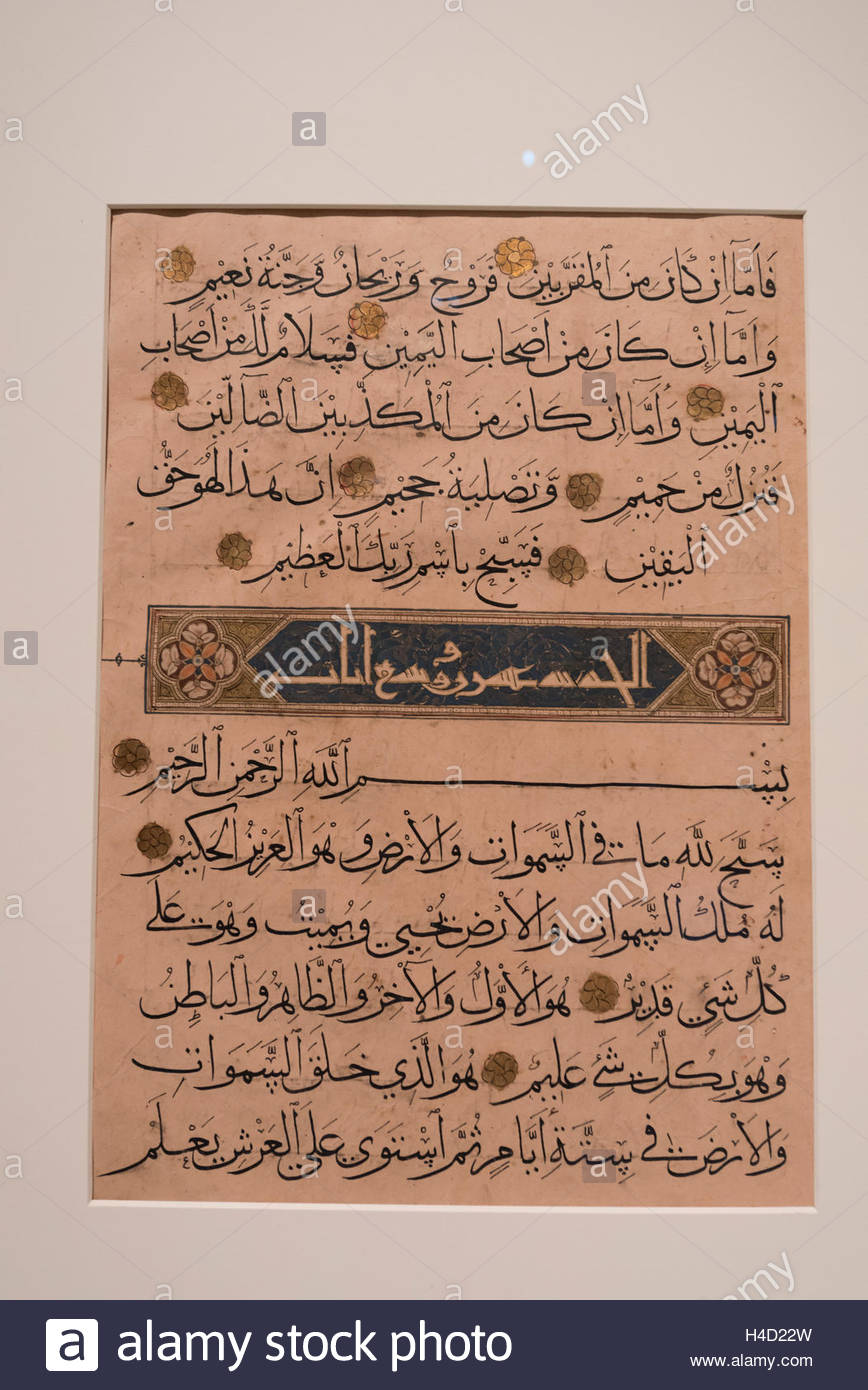 فَأَمَّا إِنْ كَانَ مِنَ ٱلْمُقَرَّبِينَ فَرَوْحٌ وَرَيْحَانٌ وَجَنَّةُ نَعِيمٍ
وَأَمَّا إِنْ كَانَ مِنْ أَصْحَابِ ٱلْيَمِينِ فَسَلَامٌ لَكَ مِنْ أَصْحَابِ
ٱلْيَمِينِ وَأَمَّا إِنْ كَانَ مِنَ ٱلْمُكَذِّبِينَ ٱلضَّآلِّينَ
فَنُزُلٌ مِنْ حَمِيمٍ وَتَصْلِيَةُ جَحِيمٍ إِنَّ هَذَا لَهُوَ حَقُّ
ٱلْيَقِينِ فَسَبِّحْ بِٱسْمِ رَبِّكَ ٱلْعَظِيمِ
عسرون وتسع ايات
بِسْمِ ٱللَّهِ ٱلرَّحْمَنِ ٱلرَّحِيمِ
سَبَّحَ لِلَّهِ مَا فِي ٱلسَّمَوَاتِ وَٱلْأَرْضِ وَهُوَ ٱلْعَزِيزُ ٱلْحَكِيمُ
لَهُ مُلْكُ ٱلسَّمَوَاتِ وَٱلْأَرْضِ يُحْيِي وَيُمِيتُ وَهُوَ عَلَى
كُلِّ شَيْءٍ قَدِيرٌ هُوَ ٱلْأَوَّلُ وَٱلْآخِرُ وَٱلظَّاهِرُ وَٱلْبَاطِنُ
وَهُوَ بِكُلِّ شَيْءٍ عَلِيمٌ هُوَ ٱلَّذِي خَلَقَ ٱلسَّمَوَاتِ
وَٱلْأَرْضَ فِي سِتَّةِ أَيَّامٍ ثُمَّ ٱسْتَوَى عَلَى ٱلْعَرْشِ يَعْلَمُ
alamy
alamy
alamy
alamy
alamy
alamy stock photo
H4D22W
www.alamy.com